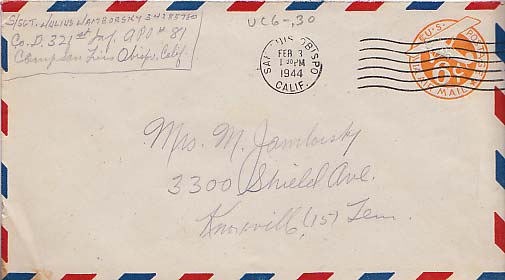 S/SGT. JULIUS JAMBORSKY 34285750
Co. D. 321st Inf. APO # 81
Camp San Luis Obispo, Calif.
UC6-,30
SAN LUIS OBISPO
FEB 3
1 30 PM
1944
CALIF.
U.S. POSTAGE
6¢
AIR MAIL
Mrs. M. Jamborsky
3300 Shield Ave.
Knoxville (15) Tenn.